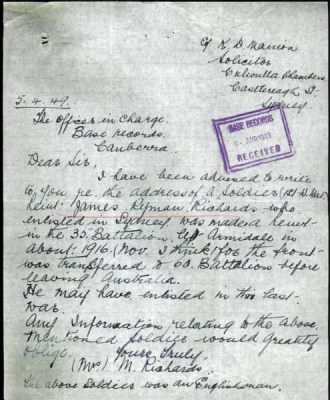 C/ K. D. Manion
Solicitor
Culwulla Chambers
Castlereagh St.
Sydney.
5.4.49
The Officer in Charge.
Base records.
Canberra
BASE RECORDS
APR 1949
RECEIVED
Dear Sir,
I have been advised to write
to you re. the address of a Soldier
James Ryman Richards who
enlisted in Sydney was made a
in the 33. Battalion at Armidale in
about 1916 (Nov. I think) for the front
was transferred to 60. Battalion before
leaving Australia.
He may have enlisted in this last
war.
Any Information relating to the above
mentioned Soldier would greatly
oblige.
Yours truly.
(Mrs) M. Richards.
The above Soldier was an Englishman.